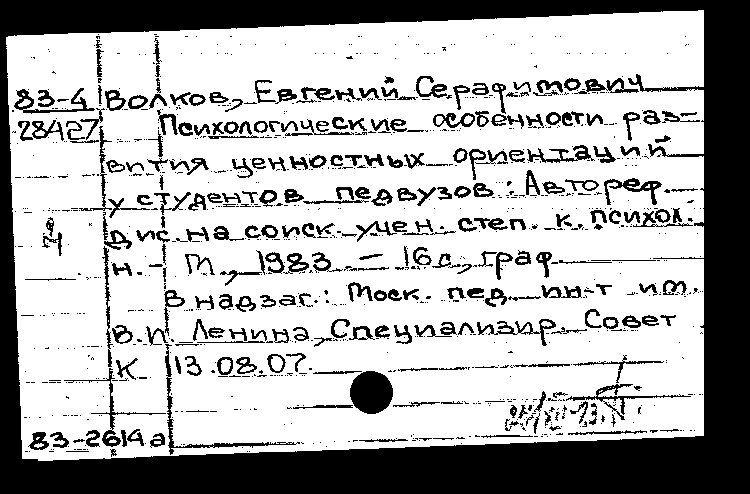 83-4 Волков, Евгений Серафимович
28427 Психологические особенности раз-
вития ценностных ориентаций
у студентов педвузов: Автореф.
дис. на соиск. учен. степ. к. психол.
н. - М., 1983. - 16 с., граф.
В надзаг.: Моск. пед. ин-т им.
В. И. Ленина, Специализир. Совет
К 13.08.07.
83-2614а